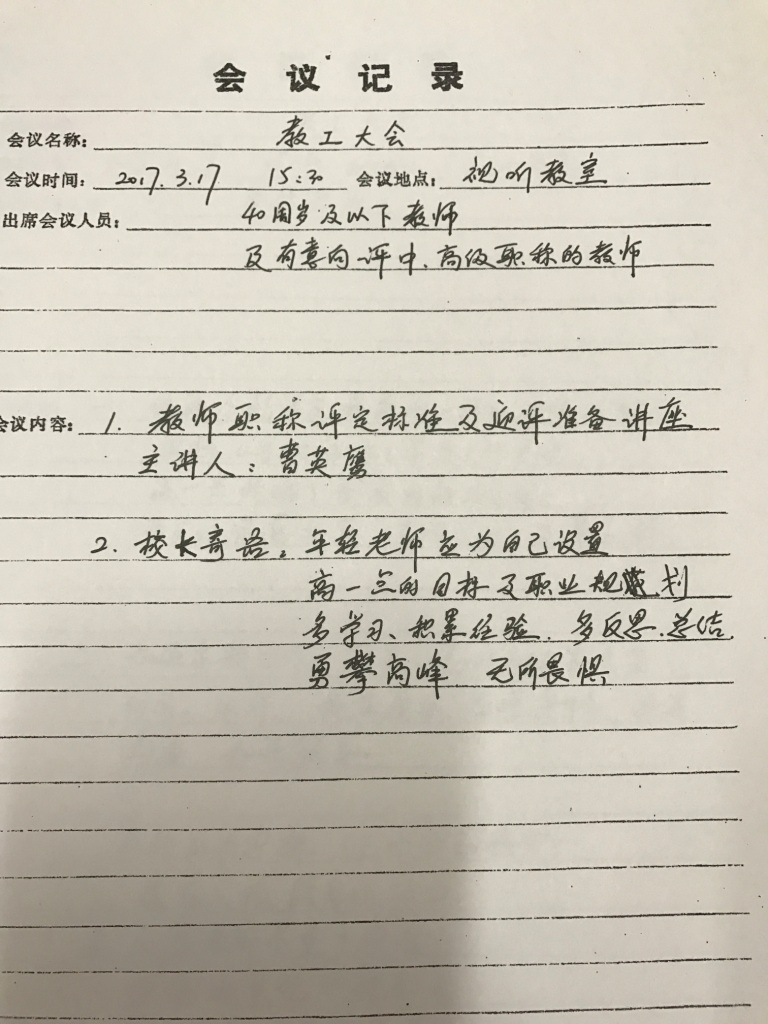 会议记录
会议名称: 教工大会
会议时间: 2017.3.17 15:30 会议地点: 视听教室
出席会议人员: 40周岁及以下教师
及有意向评中、高级职称的教师
会议内容: 1. 教师职称评定标准及迎评准备讲座
主讲人: 曹英
2. 校长寄语: 年轻老师应为自己设置
高一点的目标及职业规划
多学习、积累经验、多反思、总结.
勇攀高峰 无所畏惧